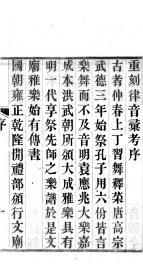 重刻律音彙考序
古者仲春上丁習舞釋菜唐高宗
武德三年始祭孔子用六佾皆言
樂舞而不及音明袁應兆大樂嘉
成本洪武朝所頒大成雅樂具有
明一代享祭先師之樂譜於是文
廟雅樂始有傳書
國朝雍正乾隆間禮部頒行文廟
序